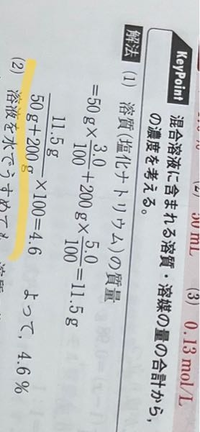 (2) 50 mL (3) 0.13 mol/L
KeyPoint 混合溶液に含まれる溶質・溶媒の量の合計から,
の濃度を考える。
解法 (1) 溶質(塩化ナトリウム)の質量
=50 g×3.0/100+200 g×5.0/100=11.5 g
11.5 g/50 g+200 g×100=4.6 よって, 4.6 %
(2) 溶液を水でうすめても